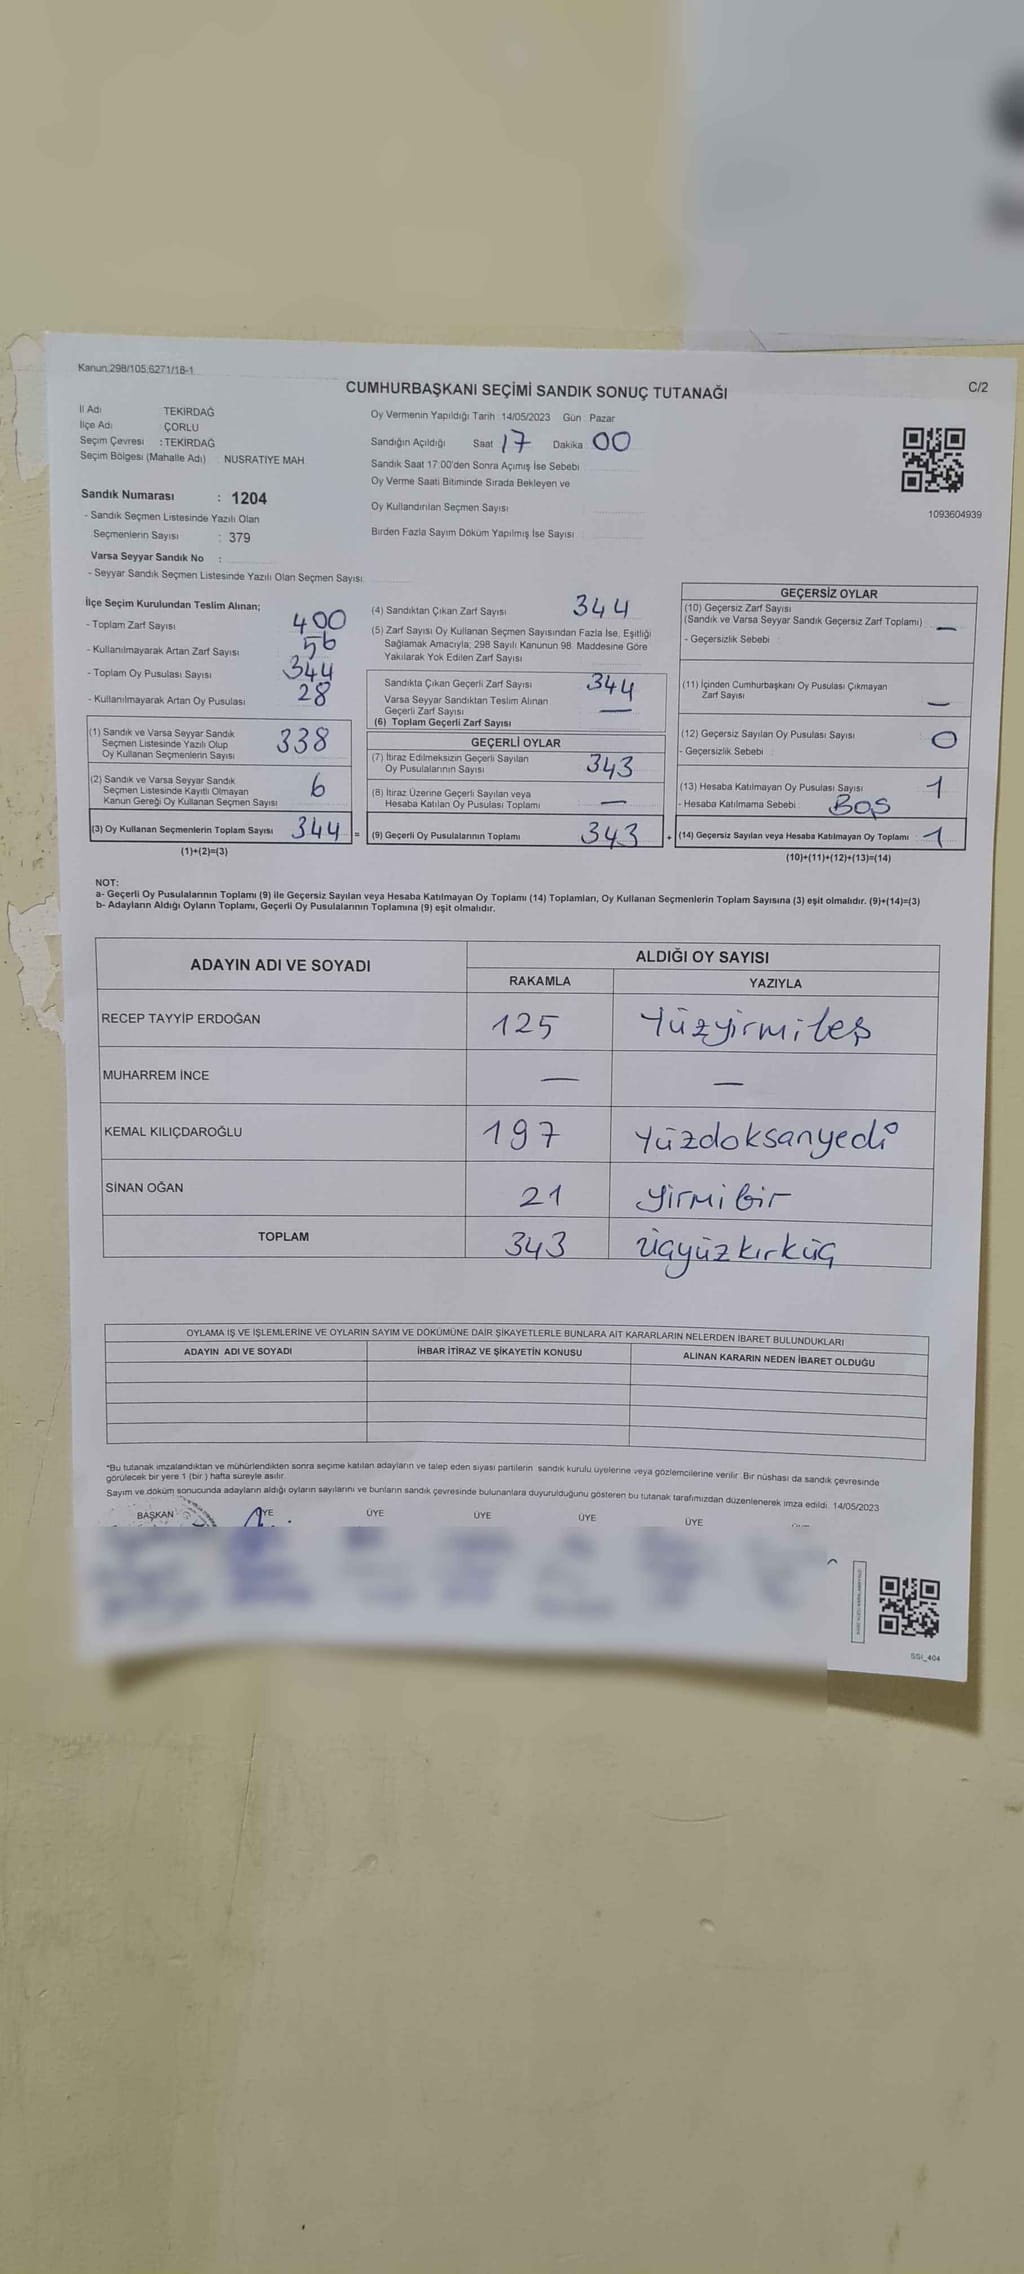 Kanun.298/105,6271/18-1
CUMHURBAŞKANI SEÇİMİ SANDIK SONUÇ TUTANAĞI
C/2
İl Adı TEKİRDAĞ
İlçe Adı : ÇORLU
Seçim Çevresi : TEKİRDAĞ
Seçim Bölgesi (Mahalle Adı) : NUSRATİYE MAH
Oy Vermenin Yapıldığı Tarih : 14/05/2023 Gün : Pazar
Sandığın Açıldığı Saat 17 Dakika 00
Sandık Saat 17:00'den Sonra Açımış İse Sebebi
Oy Verme Saati Bitiminde Sırada Bekleyen ve
Oy Kullandırılan Seçmen Sayısı
Birden Fazla Sayım Döküm Yapılmış İse Sayısı
1093604939
Sandık Numarası : 1204
- Sandık Seçmen Listesinde Yazılı Olan
Seçmenlerin Sayısı : 379
Varsa Seyyar Sandık No :
- Seyyar Sandık Seçmen Listesinde Yazılı Olan Seçmen Sayısı
İlçe Seçim Kurulundan Teslim Alınan;
- Toplam Zarf Sayısı 400
- Kullanılmayarak Artan Zarf Sayısı 56
- Toplam Oy Pusulası Sayısı 344
- Kullanılmayarak Artan Oy Pusulası 28
(1) Sandık ve Varsa Seyyar Sandık
Seçmen Listesinde Yazılı Olup
Oy Kullanan Seçmenlerin Sayısı 338
(2) Sandık ve Varsa Seyyar Sandık
Seçmen Listesinde Kayıtlı Olmayan
Kanun Gereği Oy Kullanan Seçmen Sayısı 6
(3) Oy Kullanan Seçmenlerin Toplam Sayısı 344 =
(1)+(2)=(3)
(4) Sandıktan Çıkan Zarf Sayısı 344
(5) Zarf Sayısı Oy Kullanan Seçmen Sayısından Fazla İse, Eşitliği
Sağlamak Amacıyla; 298 Sayılı Kanunun 98. Maddesine Göre
Yakılarak Yok Edilen Zarf Sayısı
Sandıkta Çıkan Geçerli Zarf Sayısı 344
Varsa Seyyar Sandıktan Teslim Alınan
Geçerli Zarf Sayısı —
(6) Toplam Geçerli Zarf Sayısı
GEÇERLİ OYLAR
(7) İtiraz Edilmeksizin Geçerli Sayılan
Oy Pusulalarının Sayısı 343
(8) İtiraz Üzerine Geçerli Sayılan veya
Hesaba Katılan Oy Pusulası Toplamı —
(9) Geçerli Oy Pusulalarının Toplamı 343 +
GEÇERSİZ OYLAR
(10) Geçersiz Zarf Sayısı
(Sandık ve Varsa Seyyar Sandık Geçersiz Zarf Toplamı) —
- Geçersizlik Sebebi :
(11) İçinden Cumhurbaşkanı Oy Pusulası Çıkmayan
Zarf Sayısı —
(12) Geçersiz Sayılan Oy Pusulası Sayısı 0
- Geçersizlik Sebebi :
(13) Hesaba Katılmayan Oy Pusulası Sayısı 1
- Hesaba Katılmama Sebebi : BOŞ
(14) Geçersiz Sayılan veya Hesaba Katılmayan Oy Toplamı 1
(10)+(11)+(12)+(13)=(14)
NOT:
a- Geçerli Oy Pusulalarının Toplamı (9) ile Geçersiz Sayılan veya Hesaba Katılmayan Oy Toplamı (14) Toplamları, Oy Kullanan Seçmenlerin Toplam Sayısına (3) eşit olmalıdır. (9)+(14)=(3)
b- Adayların Aldığı Oyların Toplamı, Geçerli Oy Pusulalarının Toplamına (9) eşit olmalıdır.
ADAYIN ADI VE SOYADI ALDIĞI OY SAYISI
RAKAMLA YAZIYLA
RECEP TAYYİP ERDOĞAN 125 Yüzyirmibeş
MUHARREM İNCE — —
KEMAL KILIÇDAROĞLU 197 Yüzdoksanyedi
SİNAN OĞAN 21 yirmibir
TOPLAM 343 üçyüzkırküç
OYLAMA İŞ VE İŞLEMLERİNE VE OYLARIN SAYIM VE DÖKÜMÜNE DAİR ŞİKAYETLERLE BUNLARA AİT KARARLARIN NELERDEN İBARET BULUNDUKLARI
ADAYIN ADI VE SOYADI İHBAR İTİRAZ VE ŞİKAYETİN KONUSU ALINAN KARARIN NEDEN İBARET OLDUĞU
*Bu tutanak imzalandıktan ve mühürlendikten sonra seçime katılan adayların ve talep eden siyasi partilerin sandık kurulu üyelerine veya gözlemcilerine verilir. Bir nüshası da sandık çevresinde
görülecek bir yere 1 (bir ) hafta süreyle asılır.
Sayım ve döküm sonucunda adayların aldığı oyların sayılarını ve bunların sandık çevresinde bulunanlara duyurulduğunu gösteren bu tutanak tarafımızdan düzenlenerek imza edildi. 14/05/2023
BAŞKAN ÜYE ÜYE ÜYE ÜYE ÜYE
SSI_404